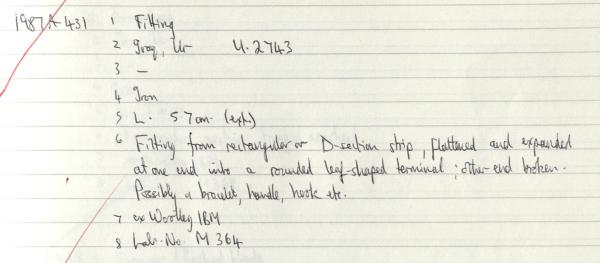 1987A-431 1 Fitting
2 Iraq, Ur U.2743
3 —
4 Iron
5 L. 5.7cm. (ext.)
6 Fitting from rectangular or D-section strip, flattened and expanded
at one end into a rounded leaf-shaped terminal; other end broken.
Possibly a bracelet, handle, hook etc.
7 ex Woolley IBM
8 Lab. No. M364